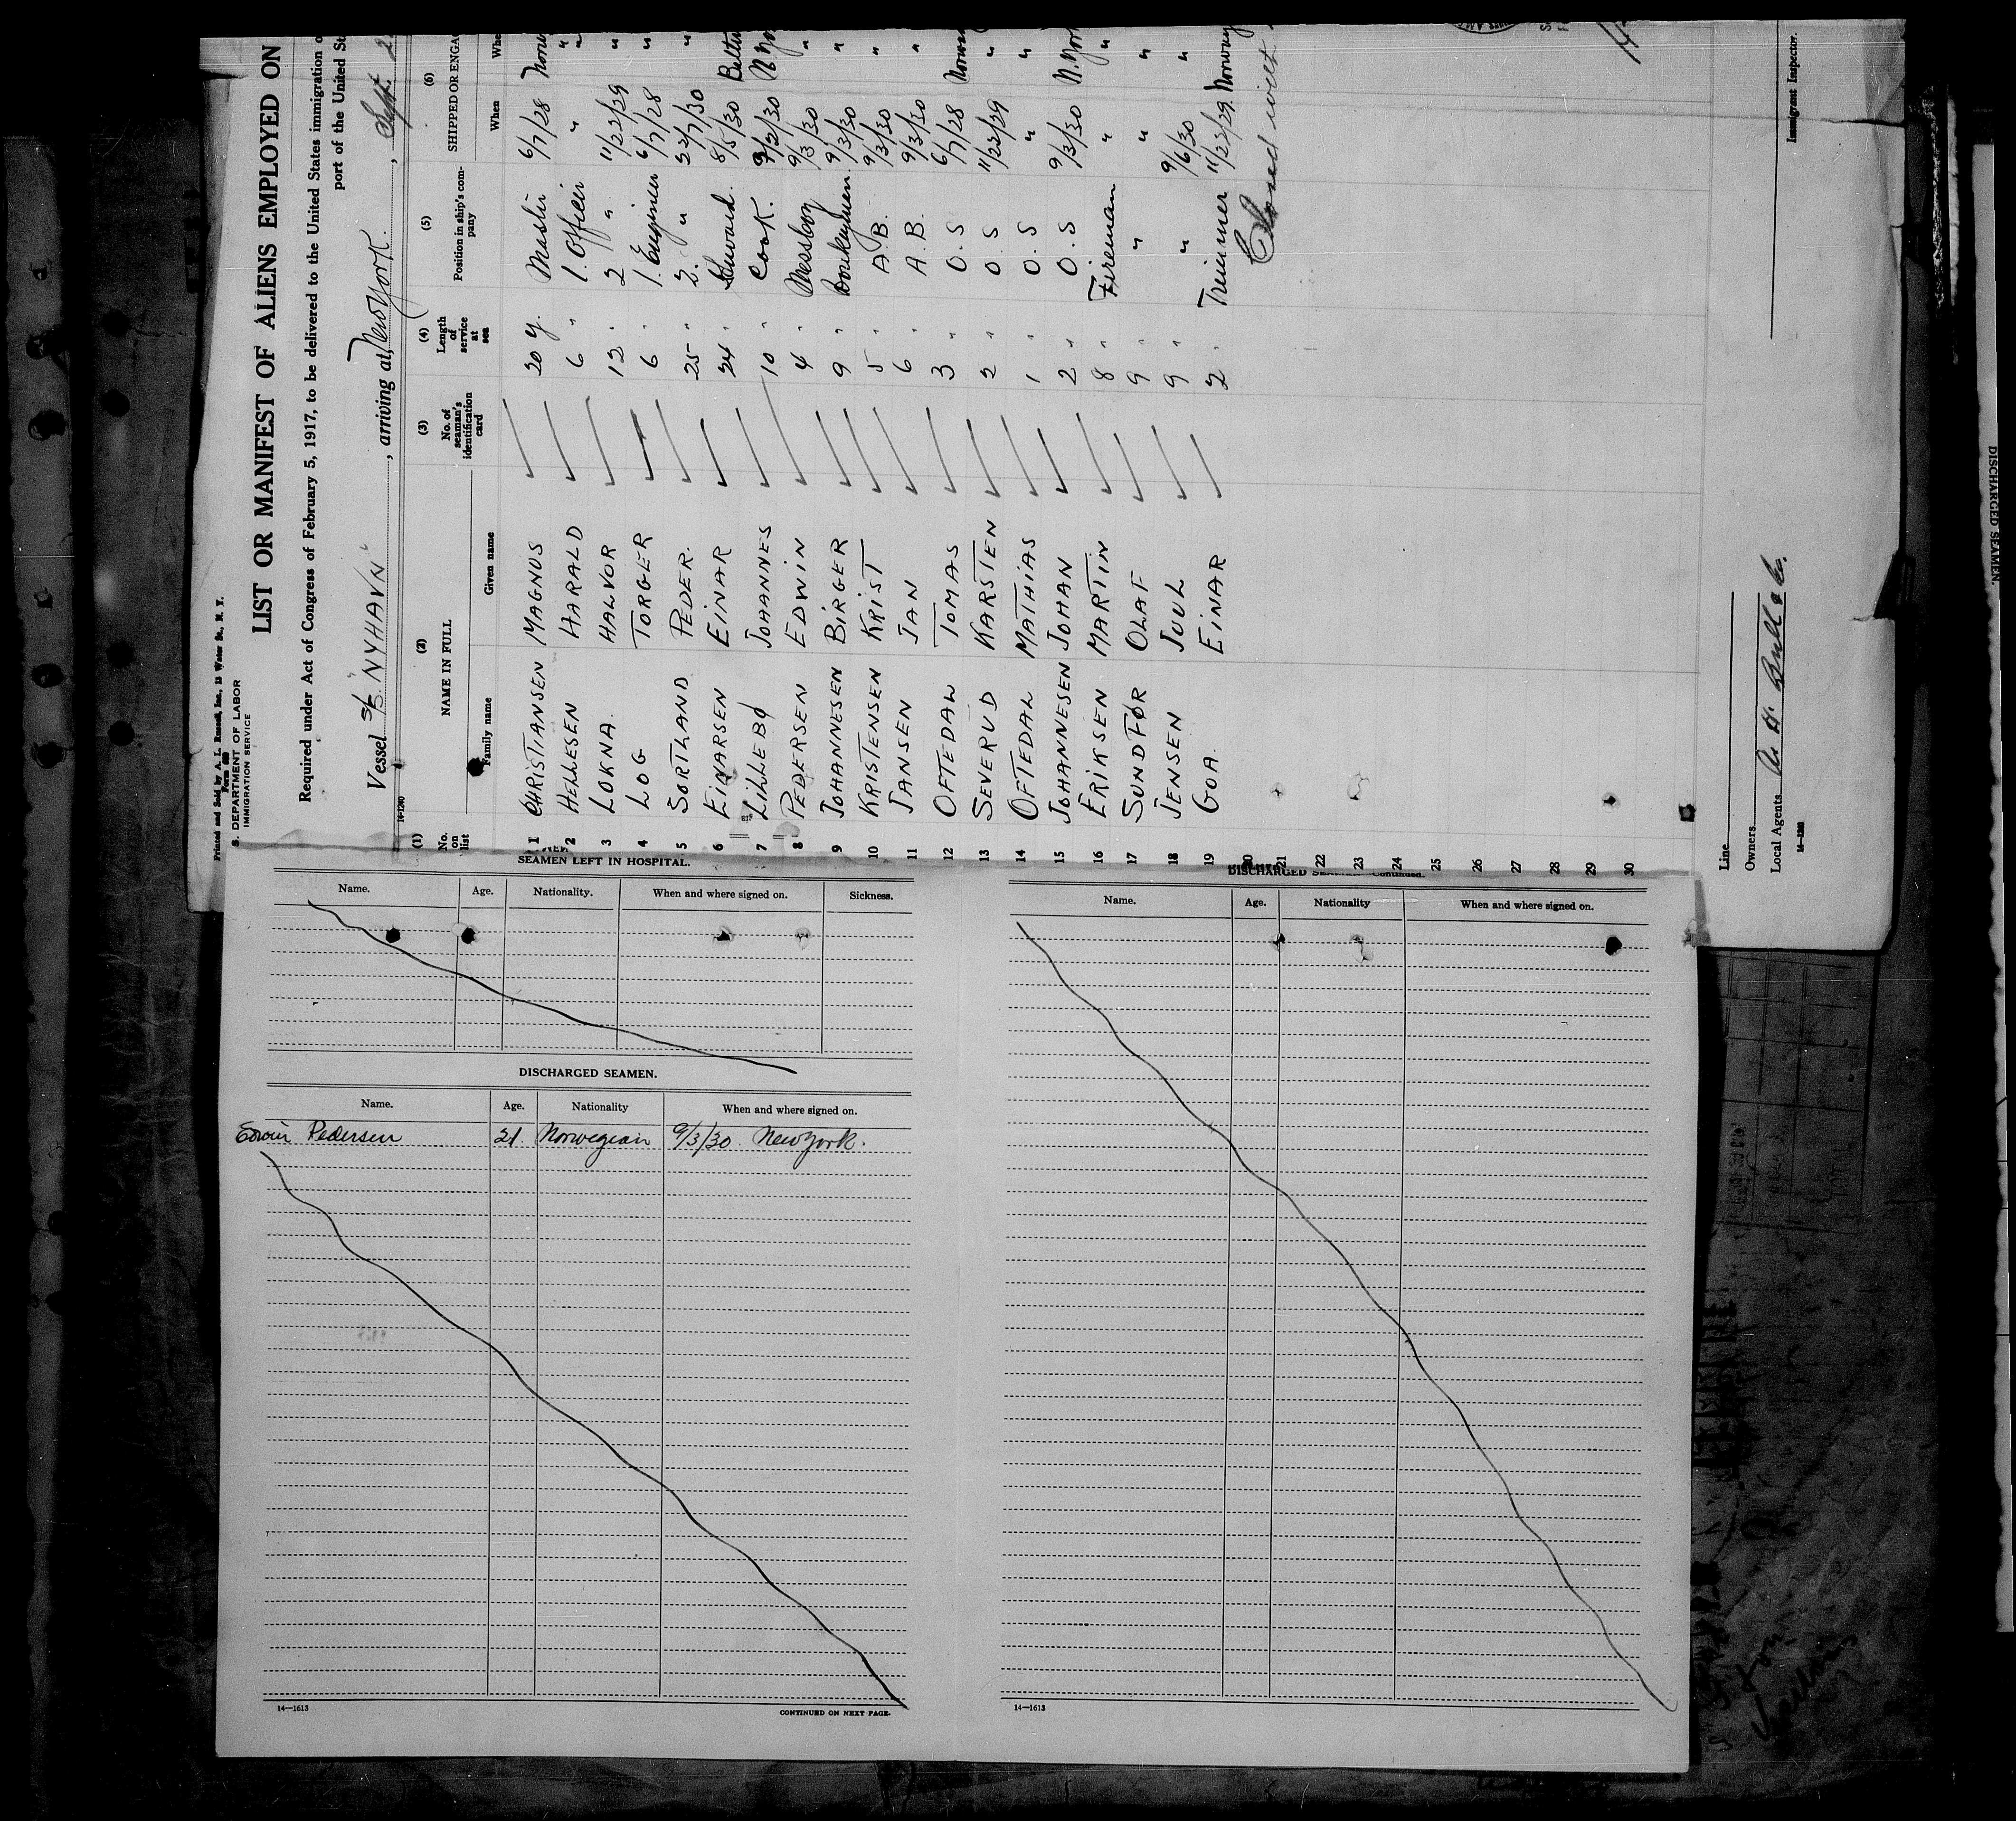 Printed and Sold by A. L. Russell, Inc., 13 Water St., N. Y.
S. DEPARTMENT OF LABOR
IMMIGRATION SERVICE
LIST OR MANIFEST OF ALIENS EMPLOYED ON
Required under Act of Congress of February 5, 1917, to be delivered to the United States immigration
port of the United St
Vessel S/S "NYHAVN", arriving at New York., Sept. 2
(1) (2) (3) (4) (5) (6)
No. on list NAME IN FULL No. of seaman's identification card Length of service at sea Position in ship's company SHIPPED OR ENGAG
Family name Given name When Whe
1 CHRISTIANSEN MAGNUS 20 y. Master 6/7/28 Norw
2 HELLESEN HARALD 6 " 1. Officer " "
3 LOKNA HALVOR 12 " 2 " 11/22/29 "
4 LOG TORGER 6 " 1. Engineer 6/7/28 "
5 SORTLAND PEDER. 25 " 2. " 22/7/30 "
6 EINARSEN EINAR 24 " Steward. 8/5/30
7 LILLEBØ JOHANNES 10 " Cook. 9/2/30 N. Yo
8 PEDERSEN EDWIN 4 " Messboy 9/3/30 "
9 JOHANNESEN BIRGER 9 " Donkeyman. 9/3/30 "
10 KRISTENSEN KRIST 5 " A.B. 9/3/30 "
11 JANSEN JAN 6 " A.B. 9/3/30 "
12 OFTEDAL TOMAS 3 " O.S 6/7/28 Norwa
13 SEVERUD KARSTEN 2 " O.S 11/22/29 "
14 OFTEDAL MATHIAS 1 " O.S " "
15 JOHANNESEN JOHAN 2 " O.S 9/3/30 N. York
16 ERIKSEN MARTIN 8 " Fireman " "
17 SUNDFØR OLAF 9 " " " "
18 JENSEN JUUL 9 " " 9/6/30 "
19 GOA EINAR 2 " Trimmer 11/22/29 Norway
Closed with
20
21
22
23
24
25
26
27
28
29
30
Line
Owners
Local Agents A. H. Bull & Co.
Immigrant Inspector.
SEAMEN LEFT IN HOSPITAL.
Name. Age. Nationality. When and where signed on. Sickness.
DISCHARGED SEAMEN.
Name. Age. Nationality When and where signed on.
Edwin Pedersen 21. Norwegian 9/3/30. New York.
14—1613
CONTINUED ON NEXT PAGE.
DISCHARGED SEAMEN—Continued.
Name. Age. Nationality When and where signed on.
14—1613
DISCHARGED SEAMEN.